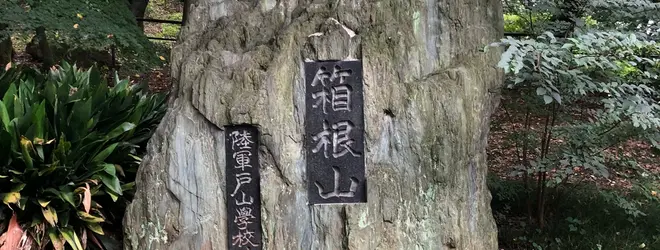 箱根山
陸軍戸山學校